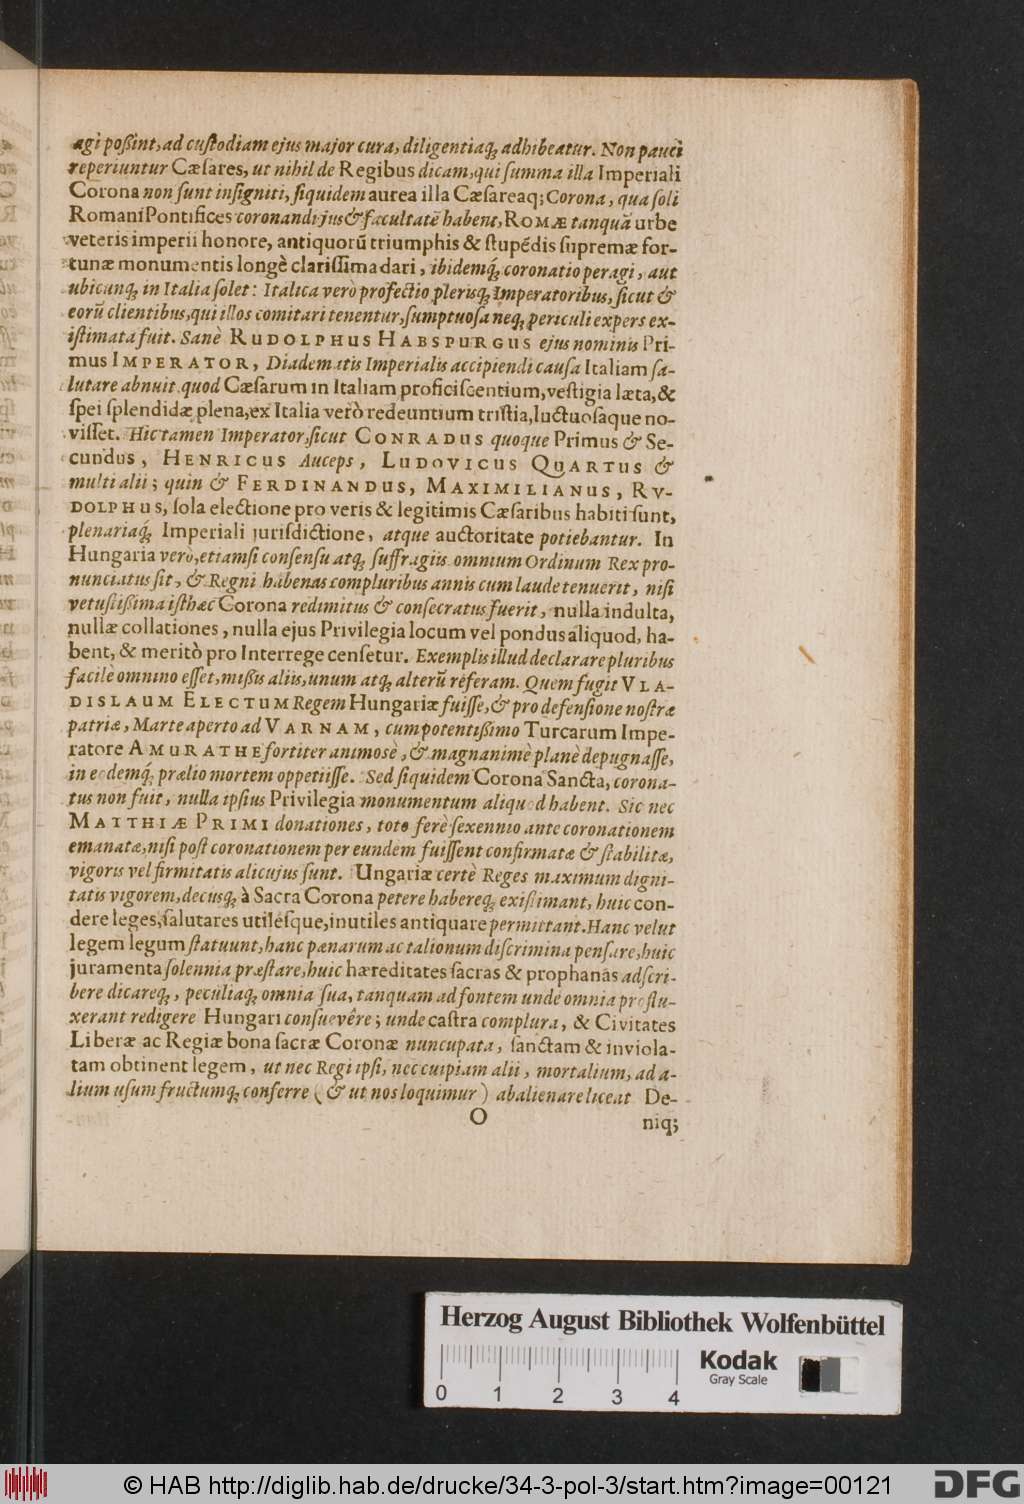 agi poßint, ad cuſtodiam ejus major cura, diligentiaq́; adhibeatur. Non pauci
reperiuntur Cæſares, ut nihil de Regibus dicam, qui ſumma illa Imperiali
Corona non ſunt inſigniti, ſiquidem aurea illa Cæſareaq; Corona, qua ſoli
Romani Pontifices coronandi jus & facultatē habent, ROMÆ tanquā urbe
veteris imperii honore, antiquorū triumphis & ſtupēdis ſupremæ for-
tunæ monumentis longè clariſſima dari, ibidemq́; coronatio peragi, aut
ubicunq; in Italia ſolet: Italica verò profectio pleriſq; Imperatoribus, ſicut &
eorū clientibus, qui illos comitari tenentur, ſumptuoſa neq; periculi expers ex-
iſtimata fuit. Sanè RUDOLPHUS HABSPURGUS ejus nominis Pri-
mus IMPERATOR, Diadematis Imperialis accipiendi cauſa Italiam ſa-
lutare abnuit quod Cæſarum in Italiam proficiſcentium, veſtigia læta, &
ſpei ſplendidæ plena, ex Italia verò redeuntium triſtia, luctuoſaque no-
viſſet. Hic tamen Imperator, ſicut CONRADUS quoque Primus & Se-
cundus, HENRICUS Auceps, LUDOVICUS QUARTUS &
multi alii; quin & FERDINANDUS, MAXIMILIANUS, RV-
DOLPHUS, ſola electione pro veris & legitimis Cæſaribus habiti ſunt,
plenariaq́; Imperiali jurisdictione, atque auctoritate potiebantur. In
Hungaria verò, etiamſi conſenſu atq; ſuffragiis omnium Ordinum Rex pro-
nunciatus ſit, & Regni habenas compluribus annis cum laude tenuerit, niſi
vetuſtißima iſthæc Corona redimitus & conſecratus fuerit, nulla indulta,
nullæ collationes, nulla ejus Privilegia locum vel pondus aliquod, ha-
bent, & meritò pro Interrege cenſetur. Exemplis illud declarare pluribus
facilè omnino eſſet, mißis aliis, unum atq; alterū referam. Quem fugit VLA-
DISLAUM ELECTUM Regem Hungariæ fuiſſe, & pro defenſione noſtræ
patriæ, Marte aperto ad VARNAM, cum potentißimo Turcarum Impe-
ratore AMURATHE fortiter animosè, & magnanimè planè depugnaſſe,
in eodemq́; prælio mortem oppetiiſſe. Sed ſiquidem Corona Sancta, corona-
tus non fuit, nulla ipſius Privilegia monumentum aliquod habent. Sic nec
MATTHIÆ PRIMI donationes, toto ferè ſexennio ante coronationem
emanatæ, niſi poſt coronationem per eundem fuiſſent confirmatæ & ſtabilitæ,
vigoris vel firmitatis alicujus ſunt. Ungariæ certè Reges maximum digni-
tatis vigorem, decuſq; à Sacra Corona petere habereq; exiſtimant, huic con-
dere leges, ſalutares utileſque, inutiles antiquare permittant. Hanc velut
legem legum ſtatuunt, hanc pœnarum ac talionum diſcrimina penſare, huic
juramenta ſolennia præſtare, huic hæreditates ſacras & prophanas adſcri-
bere dicareq;, peculiaq; omnia ſua, tanquam ad fontem unde omnia proflu-
xerant redigere Hungari conſuevêre; unde caſtra complura, & Civitates
Liberæ ac Regiæ bona ſacræ Coronæ nuncupata, ſanctam & inviola-
tam obtinent legem, ut nec Regi ipſi, nec cuipiam alii, mortalium, ad a-
lium uſum fructumq; conferre (& ut nos loquimur) abalienare liceat De-
O niq;
Herzog August Bibliothek Wolfenbüttel
Kodak
Gray Scale
0 1 2 3 4
© HAB http://diglib.hab.de/drucke/34-3-pol-3/start.htm?image=00121
DFG